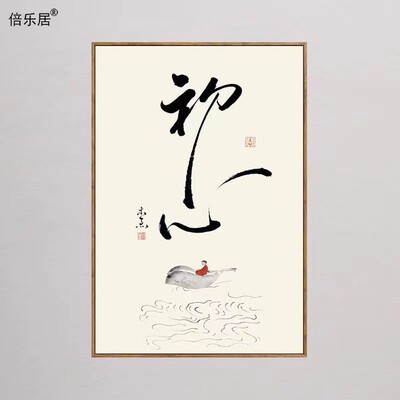 倍乐居®
初心